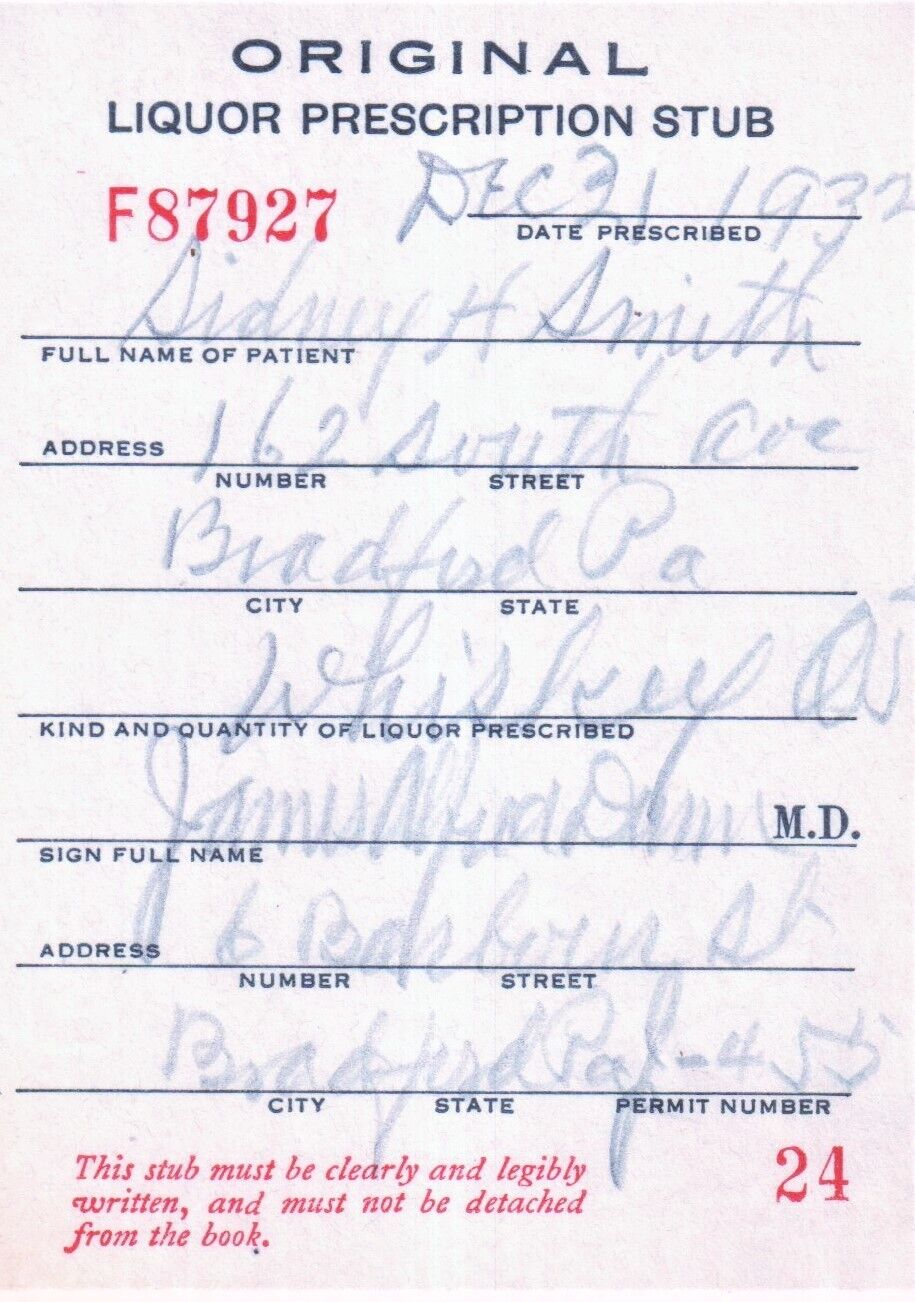 ORIGINAL
LIQUOR PRESCRIPTION STUB
F87927 DEC 31 1932
DATE PRESCRIBED
Sidney H Smith
FULL NAME OF PATIENT
ADDRESS 162 South Ave
NUMBER STREET
Bradford Pa
CITY STATE
Whiskey
KIND AND QUANTITY OF LIQUOR PRESCRIBED
James M.D.
SIGN FULL NAME
ADDRESS 6 St
NUMBER STREET
Bradford Pa
CITY STATE PERMIT NUMBER
This stub must be clearly and legibly
written, and must not be detached
from the book.
24